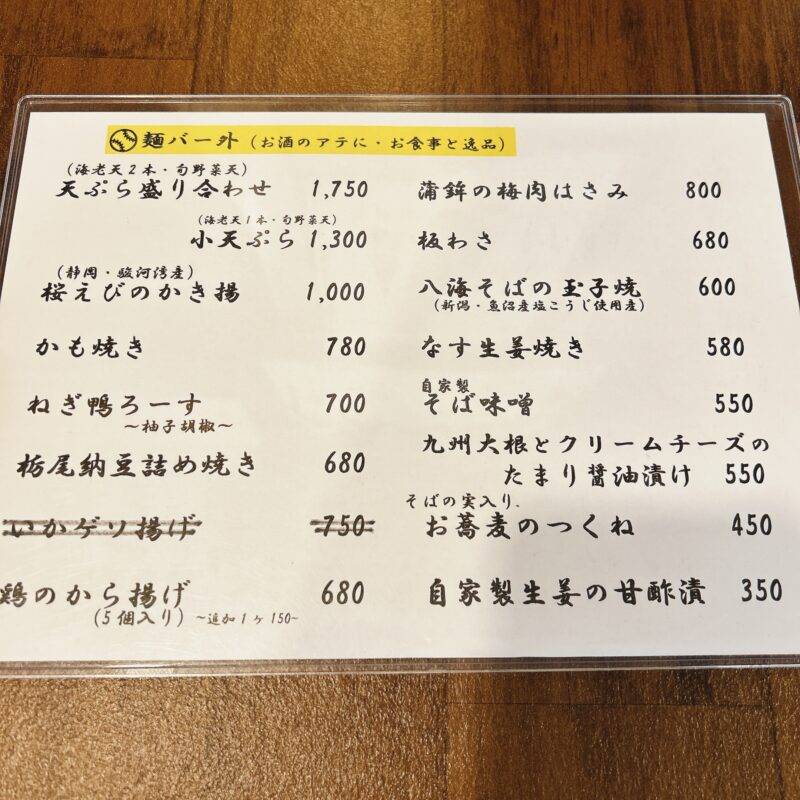 麺バー外（お酒のアテに・お食事と逸品）
（海老天2本・旬野菜天）
天ぷら盛り合わせ 1,750
（海老天1本・旬野菜天）
小天ぷら 1,300
（静岡・駿河湾産）
桜えびのかき揚 1,000
かも焼き 780
ねぎ鴨ろーす 700
～柚子胡椒～
栃尾納豆詰め焼き 680
いかゲソ揚げ 750
鶏のから揚げ 680
（5個入り）～追加1ヶ150~
蒲鉾の梅肉はさみ 800
板わさ 680
八海そばの玉子焼 600
（新潟・魚沼産塩こうじ使用産）
なす生姜焼き 580
自家製
そば味噌 550
九州大根とクリームチーズの
たまり醤油漬け 550
そばの実入り.
お蕎麦のつくね 450
自家製生姜の甘酢漬 350